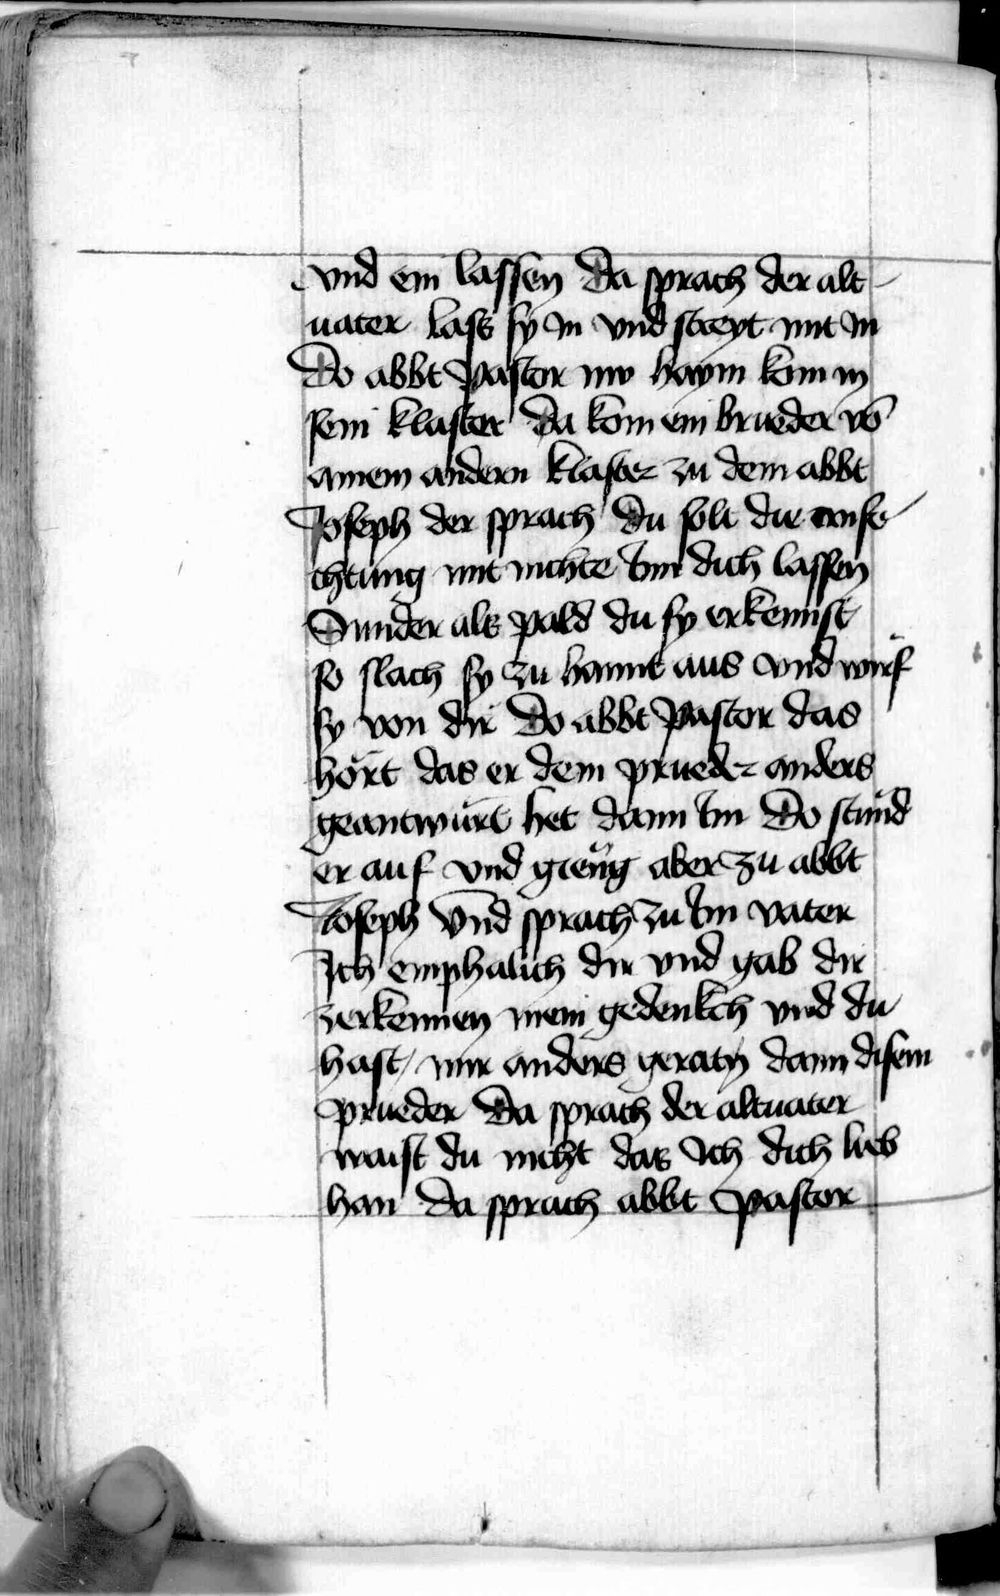 vnd ein lassen Da sprach der alt
uater lass sy in vnd streyt mit in
Do abbt Pastor nw haym kom in
sein kloster Da kom ein brueder vō
ainem andern kloster zu dem abbt
Joseph der sprach Du solt die anfe
chtung mit nichte Inn dich lassen
Sunder als pald du sy erkennst
so slach sy zu hannt aus vnd würf
sy von dir Do abbt Pastor das
hört das er dem prueder anders
geantwürt het dann Im Do stůnd
er auf vnd gieng aber zu abbt
Joseph Vnd sprach zu Im vater
Ich emphalich dir vnd gab dir
zerkennen mein gedenkch vnd du
hast mir anders geratn dann disem
prueder Da sprach der altuater
waist du nicht das Ich dich lieb
han Da sprach abbt Pastor